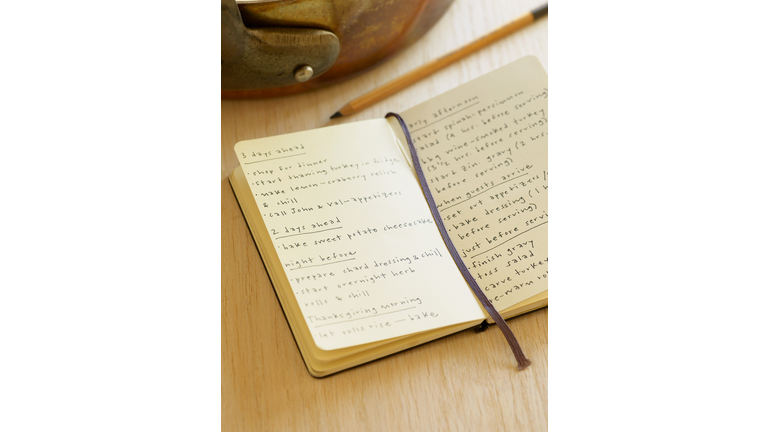 3 days ahead
· shop for dinner
· start thawing turkey in fridge
· make lemon-cranberry relish
& chill
· call John & val-appetizers
2 days ahead
· bake sweet potato cheesecake
night before
· prepare chard dressing & chill
· start overnight herb
rolls & chill
Thanksgiving morning
· let rolls rise — bake
early afternoon
start spinach-persimmon
salad (4 hrs. before serving)
bbq wine-smoked turkey
(3½ hrs. before serving)
start zin gravy (2 hrs.
before serving)
when guests arrive
· set out appetizers
· bake dressing (1 h
before serving)
just before servin
· finish gravy
toss salad
carve turkey
re-warm rol